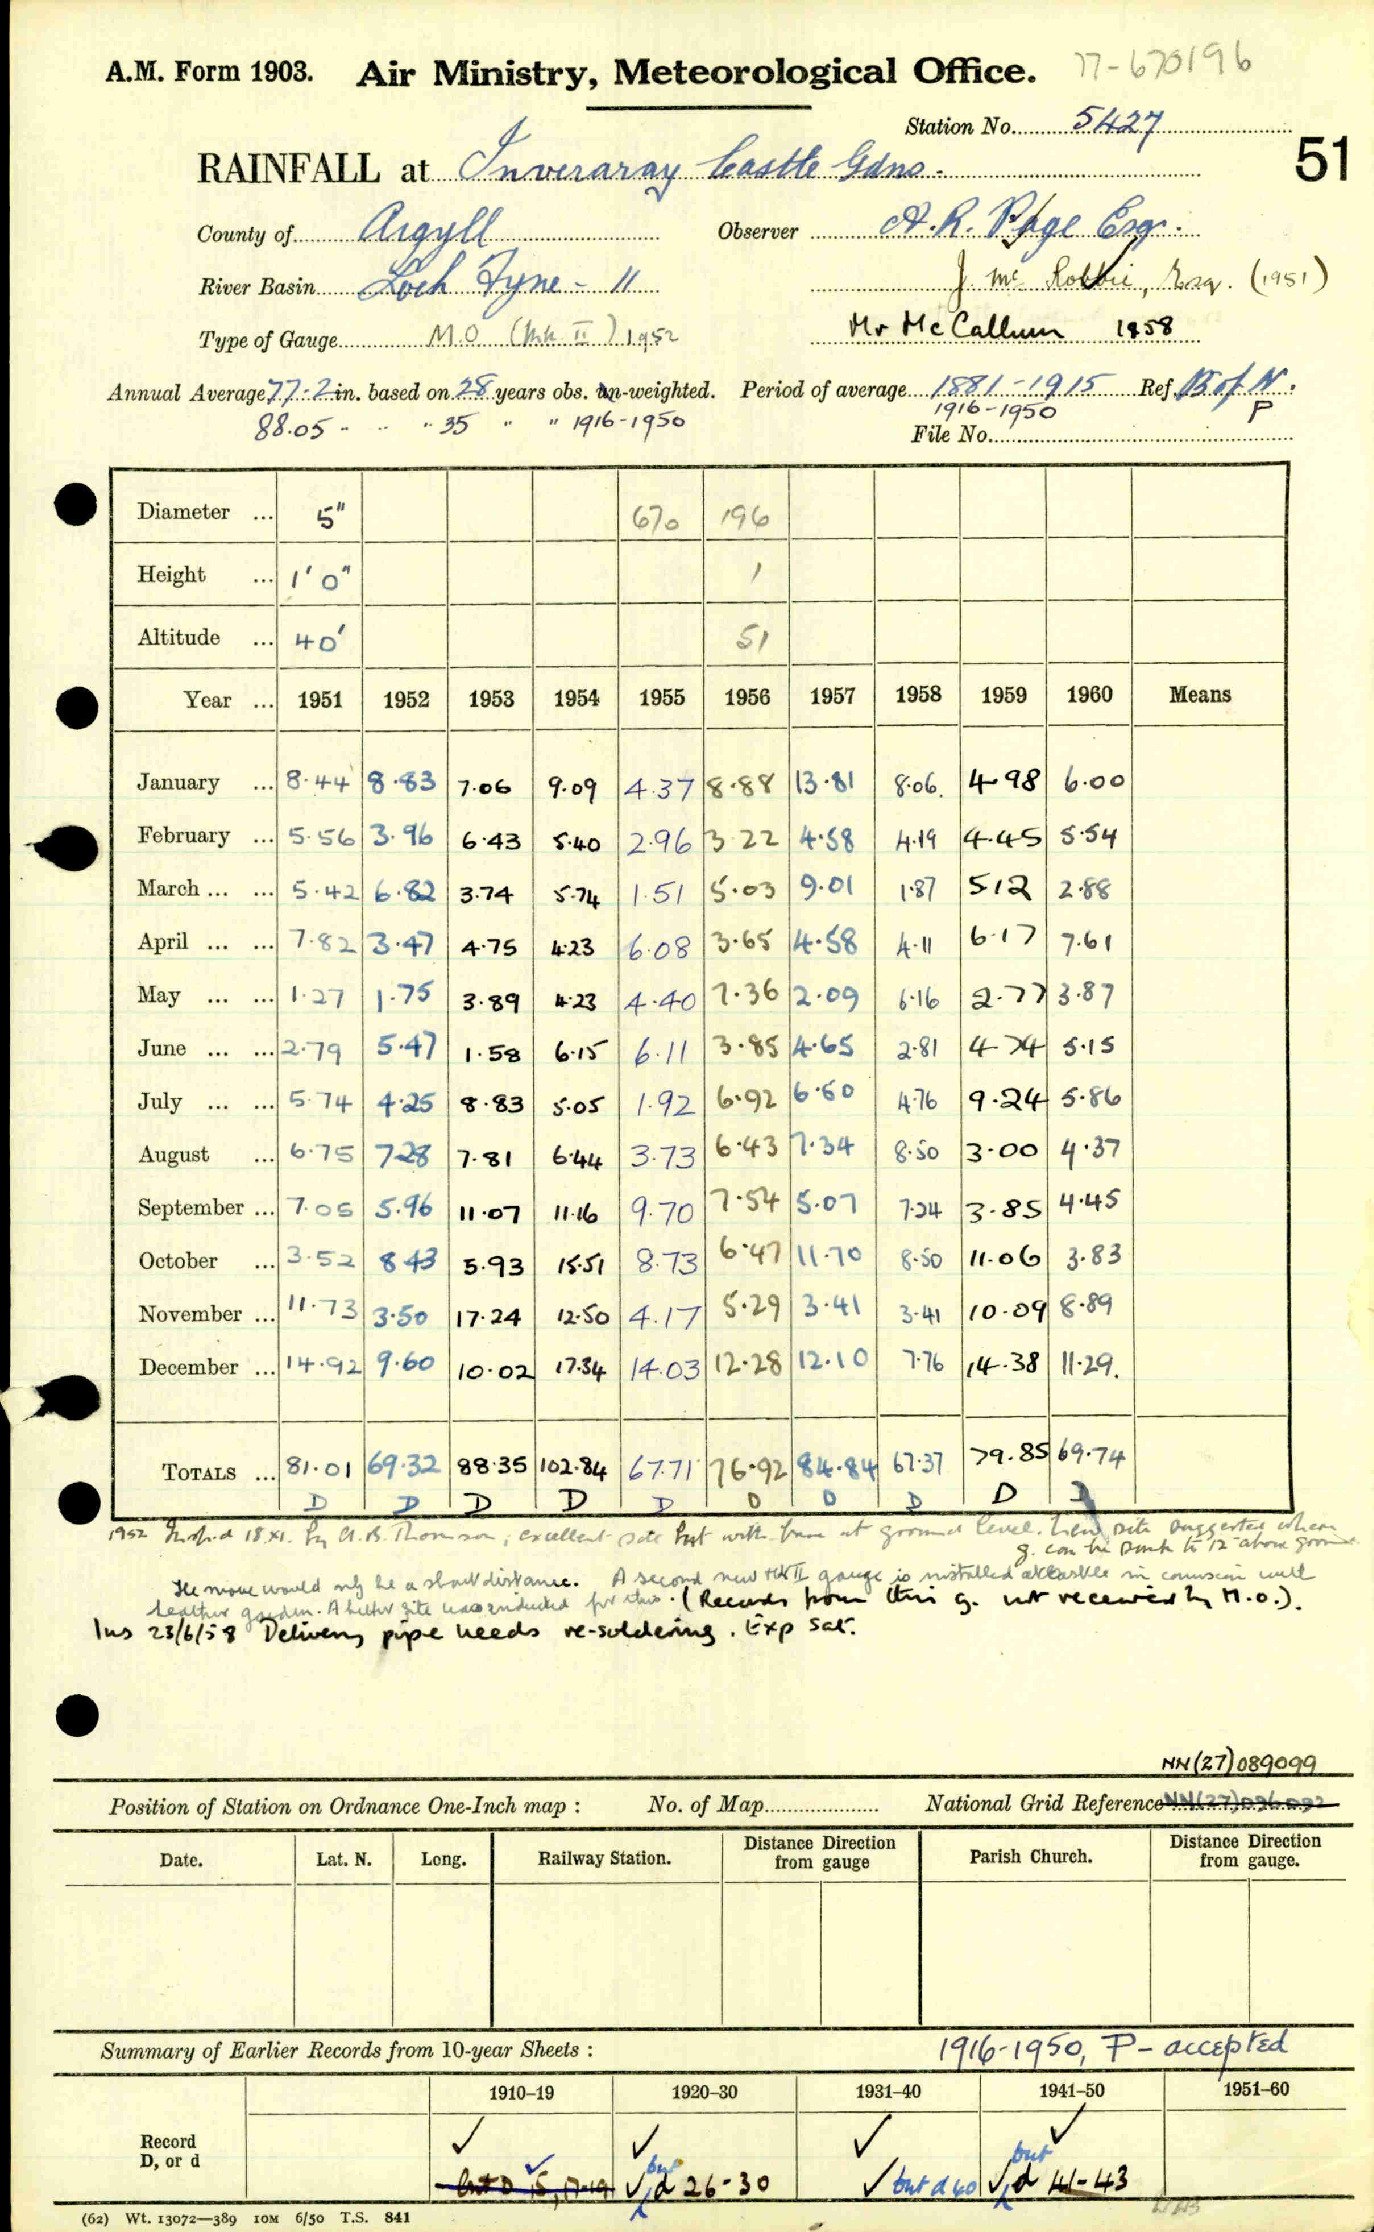 A.M. Form 1903. Air Ministry, Meteorological Office. 77-670196
Station No. 5427
51
RAINFALL at Inveraray Castle Gdns.
County of Argyll Observer A.R. Page Esqr.
River Basin Loch Fyne - 11 J. Mc Robbie, Esq. (1951)
Type of Gauge M.O (Mk II) 1952 Mr McCallum 1958
Annual Average 77.2 in. based on 28 years obs. un-weighted. Period of average 1881-1915 Ref. B of N.
88.05 " " " 35 " " 1916-1950 1916-1950 P
File No.
Diameter ... 5" 670 196
Height ... 1' 0" 1
Altitude ... 40' 51
Year ... 1951 1952 1953 1954 1955 1956 1957 1958 1959 1960 Means
January ... 8.44 8.83 7.06 9.09 4.37 8.88 13.81 8.06. 4.98 6.00
February ... 5.56 3.96 6.43 5.40 2.96 3.22 4.58 4.19 4.45 5.54
March ... ... 5.42 6.82 3.74 5.74 1.51 5.03 9.01 1.87 5.12 2.88
April ... ... 7.82 3.47 4.75 4.23 6.08 3.65 4.58 4.11 6.17 7.61
May ... ... 1.27 1.75 3.89 4.23 4.40 7.36 2.09 6.16 2.77 3.87
June ... ... 2.79 5.47 1.58 6.15 6.11 3.85 4.65 2.81 4.74 5.15
July ... ... 5.74 4.25 8.83 5.05 1.92 6.92 6.50 4.76 9.24 5.86
August ... 6.75 7.28 7.81 6.44 3.73 6.43 7.34 8.50 3.00 4.37
September ... 7.05 5.96 11.07 11.16 9.70 7.54 5.07 7.24 3.85 4.45
October ... 3.52 8.43 5.93 15.51 8.73 6.47 11.70 8.50 11.06 3.83
November ... 11.73 3.50 17.24 12.50 4.17 5.29 3.41 3.41 10.09 8.89
December ... 14.92 9.60 10.02 17.34 14.03 12.28 12.10 7.76 14.38 11.29.
TOTALS ... 81.01 69.32 88.35 102.84 67.71 76.92 84.84 67.37 79.85 69.74
D D D D D D D D D D
1952 Insp.d 18.XI. by A.B. Thomson, excellent site but with base at ground level. New site suggested where
g. can be sunk to 12" above ground
The move would only be a short distance. A second new Mk II gauge is installed at castle in connexion with
garden. A better site was for this. (Records from this g. not received by M.O.).
Ins 23/6/58 Delivery pipe needs re-soldering. Exp sat.
NN(27)089099
Position of Station on Ordnance One-Inch map : No. of Map National Grid Reference NN(27)096092
Date. Lat. N. Long. Railway Station. Distance Direction from gauge Parish Church. Distance Direction from gauge.
Summary of Earlier Records from 10-year Sheets : 1916-1950, P - accepted
1910–19 1920–30 1931–40 1941–50 1951–60
Record D, or d ✓ ✓ ✓ ✓
but D 15, 17-19 ✓ but d 26-30 ✓ but d 40 ✓ but d 41-43
(62) Wt. 13072—389 10M 6/50 T.S. 841